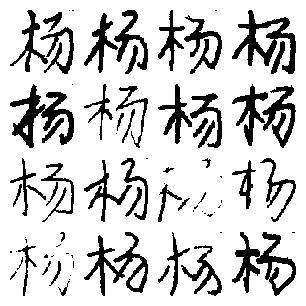 杨杨杨杨
杨杨杨杨
杨杨杨杨
杨杨杨杨